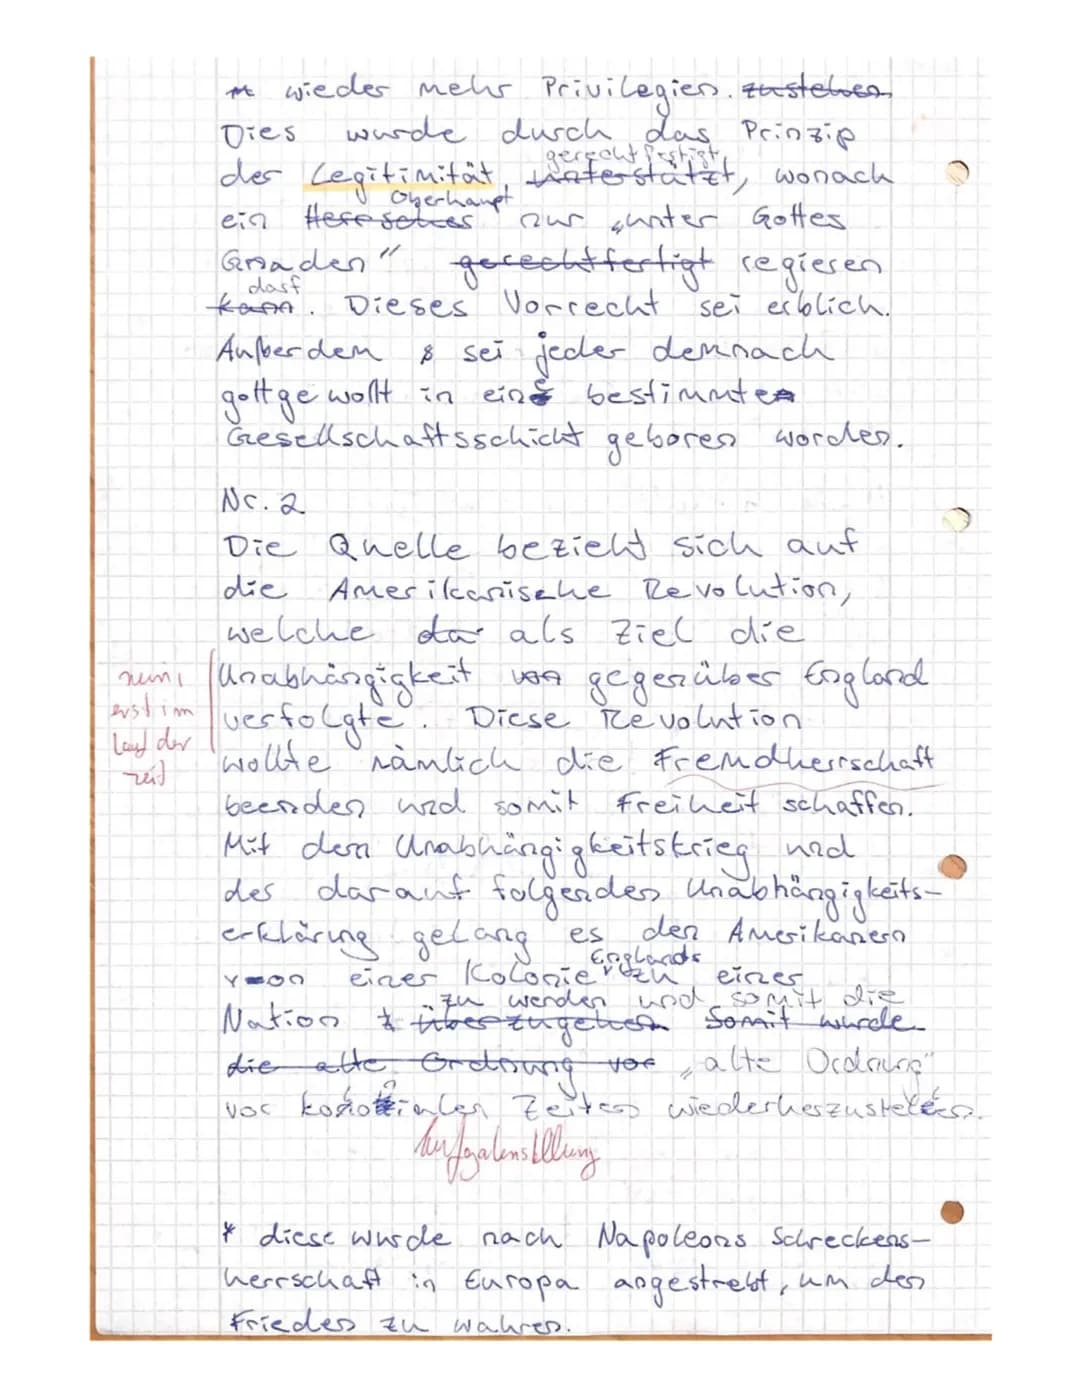 wieder mehr Privilegien. zustehen
Dies wurde durch das Prinzip
gerechtfertigt
der Legitimität unterstützt, wonach
Oberhaupt
ein Herrscher nur „unter Gottes
Gnaden" gerechtfertigt regieren
darf
kann. Dieses Vorrecht sei erblich.
Außerdem sei jeder demnach
gottgewollt in eine bestimmte
Gesellschaftsschicht geboren worden.
Nr. 2
Die Quelle bezieht sich auf
die Amerikanische Revolution,
welche als Ziel die
nein, Unabhängigkeit von gegenüber England
erst im verfolgte. Diese Revolution
Lauf der
Zeit wollte nämlich die Fremdherrschaft
beenden und somit Freiheit schaffen.
Mit dem Unabhängigkeitskrieg und
der darauf folgenden Unabhängigkeits-
erklärung gelang es den Amerikanern
Englands
von einer Kolonie zu einer
zu werden und somit die
Nation überzugehen. Somit wurde
die alte Ordnung vor „alte Ordnung"
vor kolonialen Zeiten wiederherzustellen.
Aufgabenstellung
* diese wurde nach Napoleons Schreckens-
herrschaft in Europa angestrebt, um den
Frieden zu wahren.